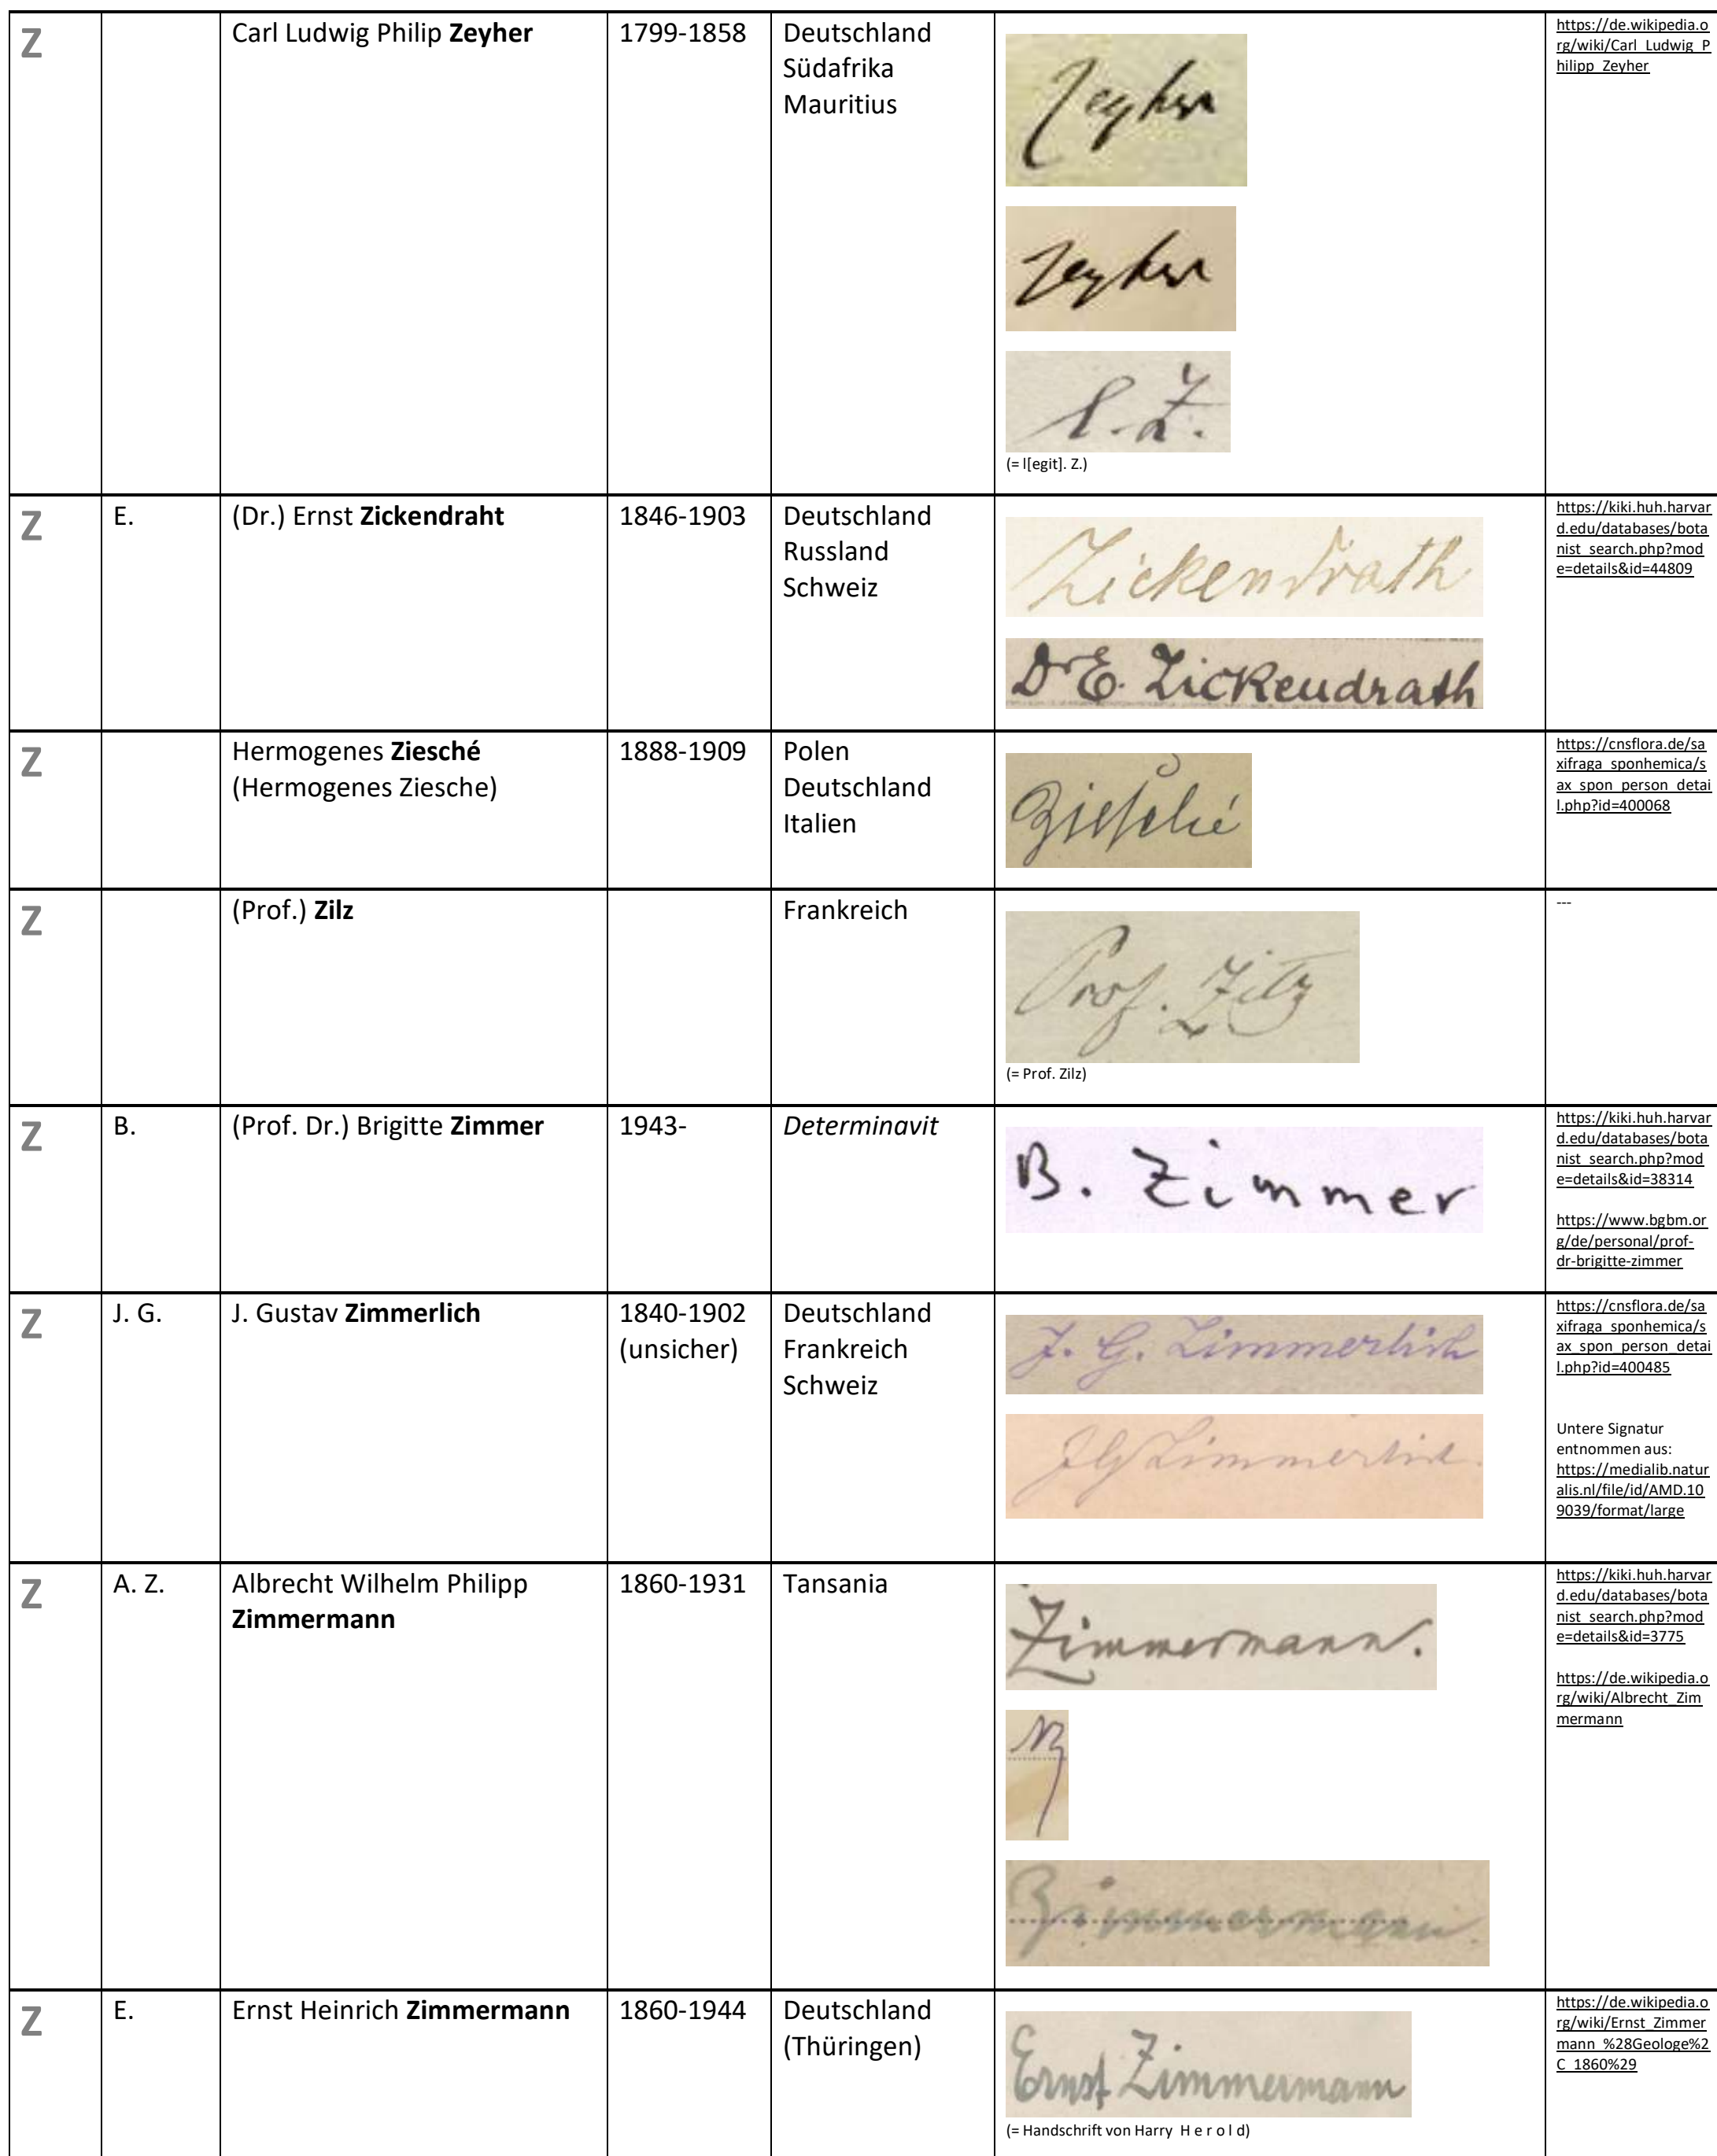 Z
Carl Ludwig Philip Zeyher
1799-1858
Deutschland
Südafrika
Mauritius
Zeyher
Zeyher
l. Z.
(= l[egit]. Z.)
https://de.wikipedia.o
rg/wiki/Carl_Ludwig_P
hilipp_Zeyher
Z
E.
(Dr.) Ernst Zickendraht
1846-1903
Deutschland
Russland
Schweiz
Zickendrath
Dr E. Zickendrath
https://kiki.huh.harvar
d.edu/databases/bota
nist_search.php?mod
e=details&id=44809
Z
Hermogenes Ziesché
(Hermogenes Ziesche)
1888-1909
Polen
Deutschland
Italien
Ziesché
https://cnsflora.de/sa
xifraga_sponhemica/s
ax_spon_person_detai
l.php?id=400068
Z
(Prof.) Zilz
Frankreich
Prof. Zilz
(= Prof. Zilz)
---
Z
B.
(Prof. Dr.) Brigitte Zimmer
1943-
Determinavit
B. Zimmer
https://kiki.huh.harvar
d.edu/databases/bota
nist_search.php?mod
e=details&id=38314
https://www.bgbm.or
g/de/personal/prof-
dr-brigitte-zimmer
Z
J. G.
J. Gustav Zimmerlich
1840-1902
(unsicher)
Deutschland
Frankreich
Schweiz
J. G. Zimmerlich
JG Zimmerlich.
https://cnsflora.de/sa
xifraga_sponhemica/s
ax_spon_person_detai
l.php?id=400485
Untere Signatur
entnommen aus:
https://medialib.natur
alis.nl/file/id/AMD.10
9039/format/large
Z
A. Z.
Albrecht Wilhelm Philipp
Zimmermann
1860-1931
Tansania
Zimmermann.
Zimmermann.
https://kiki.huh.harvar
d.edu/databases/bota
nist_search.php?mod
e=details&id=3775
https://de.wikipedia.o
rg/wiki/Albrecht_Zim
mermann
Z
E.
Ernst Heinrich Zimmermann
1860-1944
Deutschland
(Thüringen)
Ernst Zimmermann
(= Handschrift von Harry H e r o l d)
https://de.wikipedia.o
rg/wiki/Ernst_Zimmer
mann_%28Geologe%2
C_1860%29